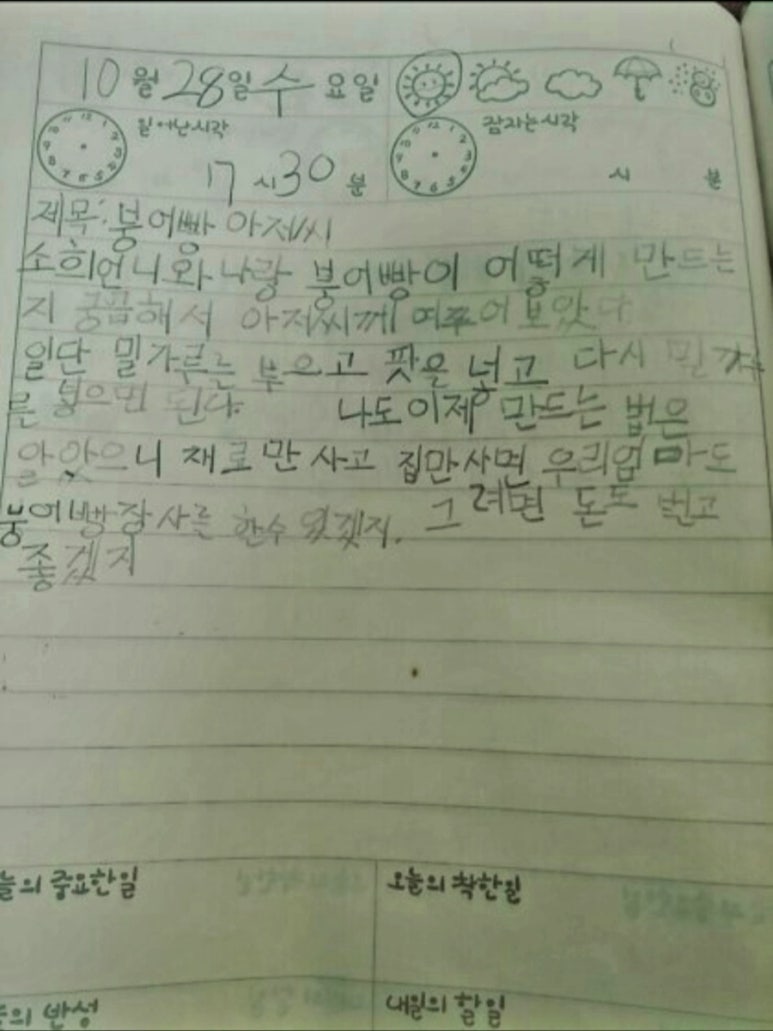 10월 28일 수요일
12 1 2 3 4 5 6 7 8 9 10 11
일어난시각
12 1 2 3 4 5 6 7 8 9 10 11
잠자는시각
17시 30분
시 분
제목: 붕어빵 아저씨
소희언니와 나랑 붕어빵이 어떻게 만드는
지 궁금해서 아저씨께 여쭈어 보았다
일단 밀가루는 부으고 팟을 넣고 다시 밀가루
를 붛으면 된다. 나도 이제 만드는 법은
알았으니 재료만 사고 집만사면 우리엄마도
붕어빵장사를 한수 있겠지. 그려면 돈도 벌고
좋겠지
늘의 중요한일
오늘의 착한일
의 반성
내일의 할일